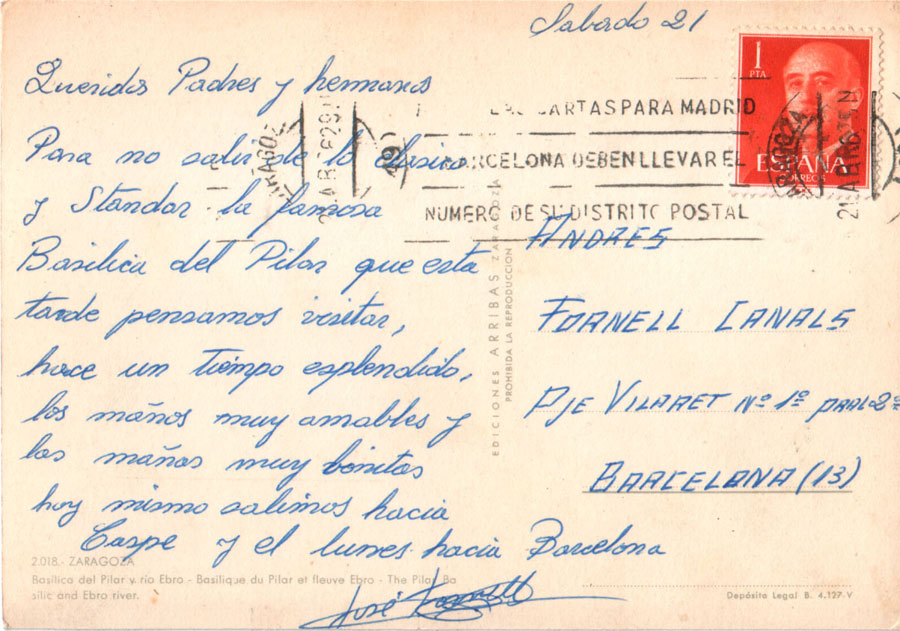 Sabado 21
Queridos Padres y hermanos
Para no salir de lo clasico
y Standar la famosa
Basilica del Pilar que esta
tarde pensamos visitar,
hace un tiempo esplendido,
los maños muy amables y
las mañas muy bonitas
hoy mismo salimos hacia
Caspe y el lunes hacia Barcelona
José Fornell
2.018.- ZARAGOZA
Basílica del Pilar y río Ebro - Basilique du Pilar et fleuve Ebro - The Pilar Ba
silic and Ebro river.
EDICIONES ARRIBAS ZARAGOZA
PROHIBIDA LA REPRODUCCION
1
PTA
ESPAÑA
CORREOS
CARTAS PARA MADRID
BARCELONA DEBEN LLEVAR EL
NUMERO DE SU DISTRITO POSTAL
ANDRES
FORNELL CANALS
PJE VILARET Nº 1º PRAL 2º
BARCELONA (13)
Depósito Legal B. 4.127-V